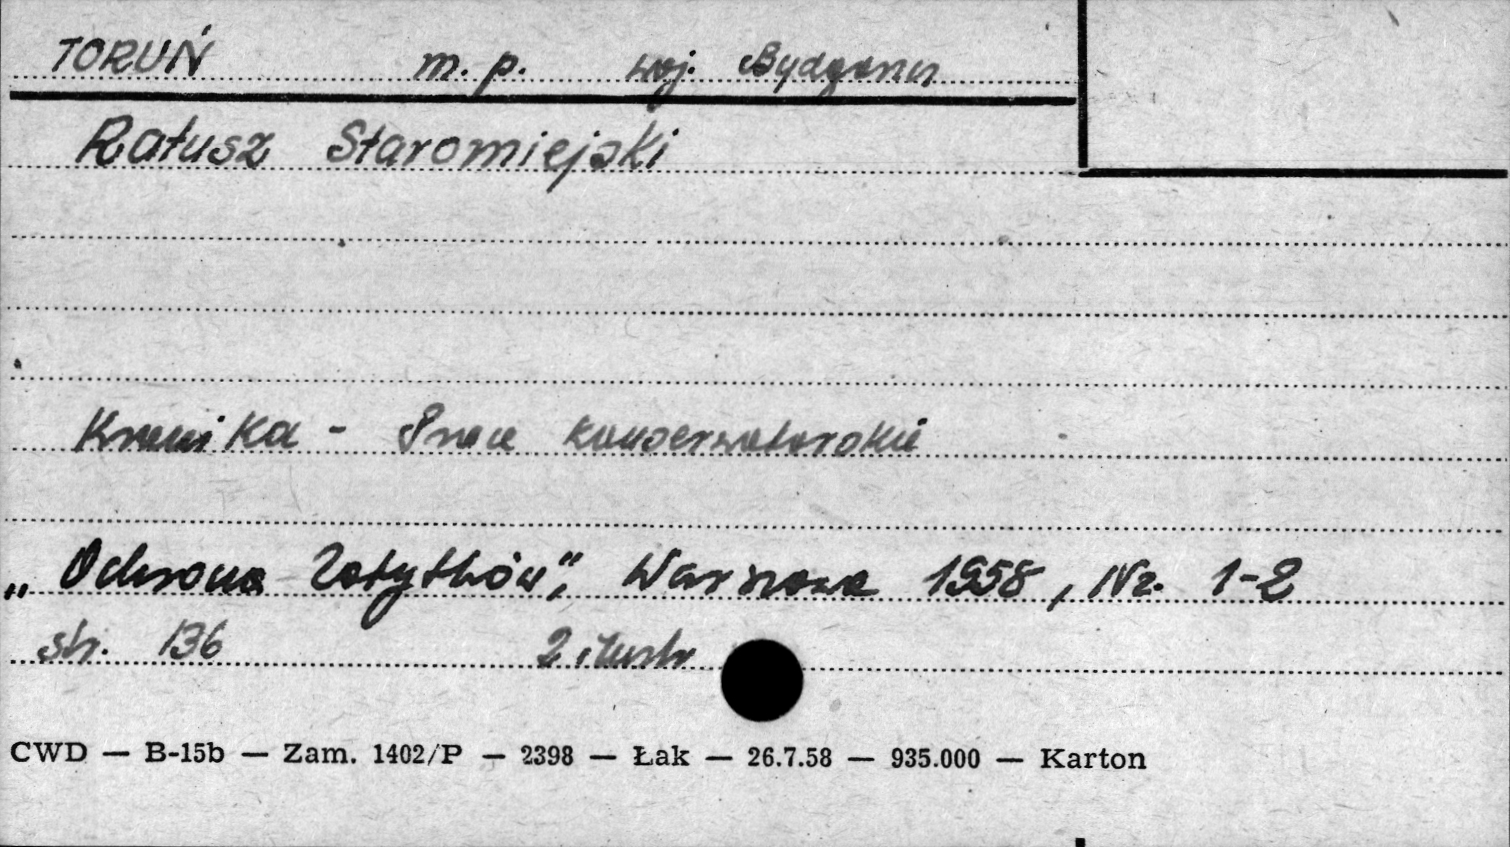 TORUŃ m. p. woj. Bydgoszcz
Ratusz Staromiejski
Kronika - Prace konserwatorskie
„Ochrona Zabytków”, Warszawa 1958, Nr. 1-2
str. 136 2 ilustr
CWD — B-15b — Zam. 1402/P — 2398 — Łak — 26.7.58 — 935.000 — Karton